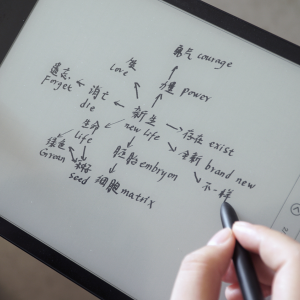 勇气 courage
爱
Love
力量 power
遗忘
Forget
消亡
die
新生
new Life
存在 exist
生命
Life
全新 brand new
不一样
胚胎 embryon
细胞 matrix
种子
seed
Groan